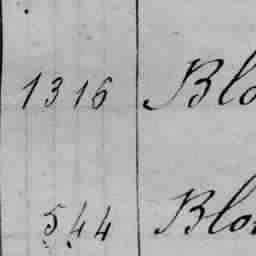 1316 Blo
544 Blo